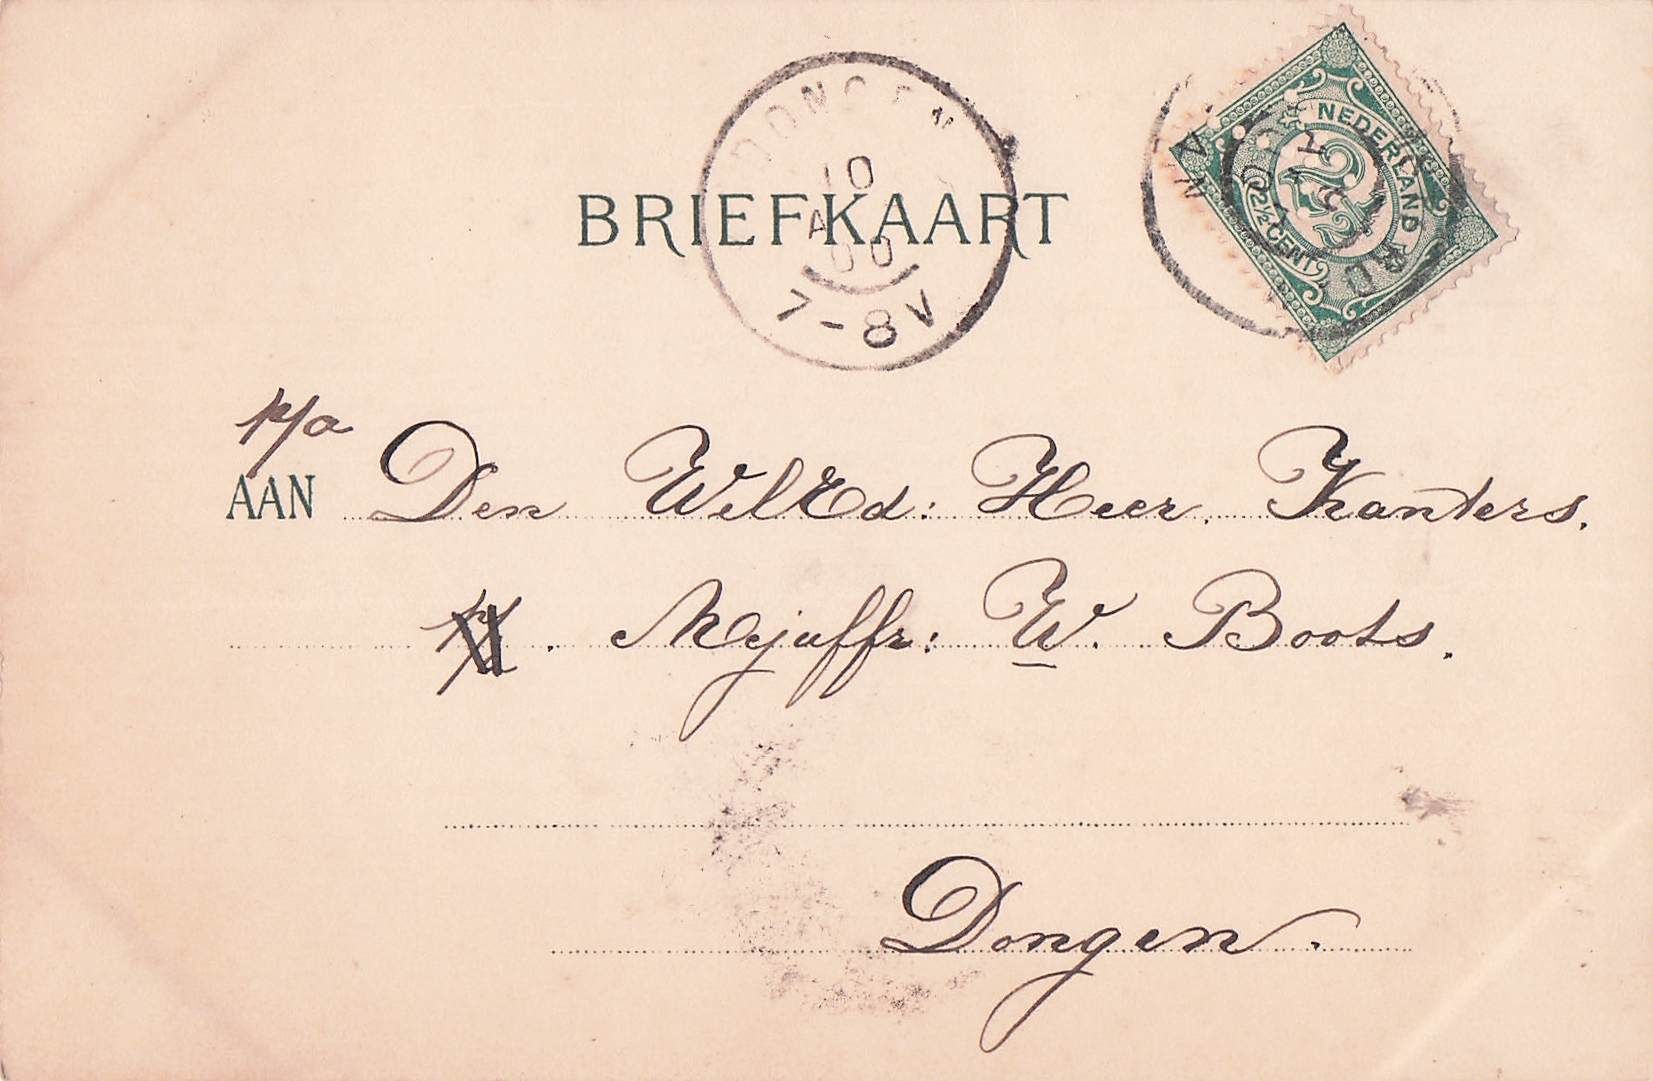 DONGEN
10
A
00
7-8V
BRIEFKAART
NEDERLAND
2½
2½ CENT
p/a
AAN Den WelEd: Heer Kanters.
Mejuffr: W. Boots.
Dongen.